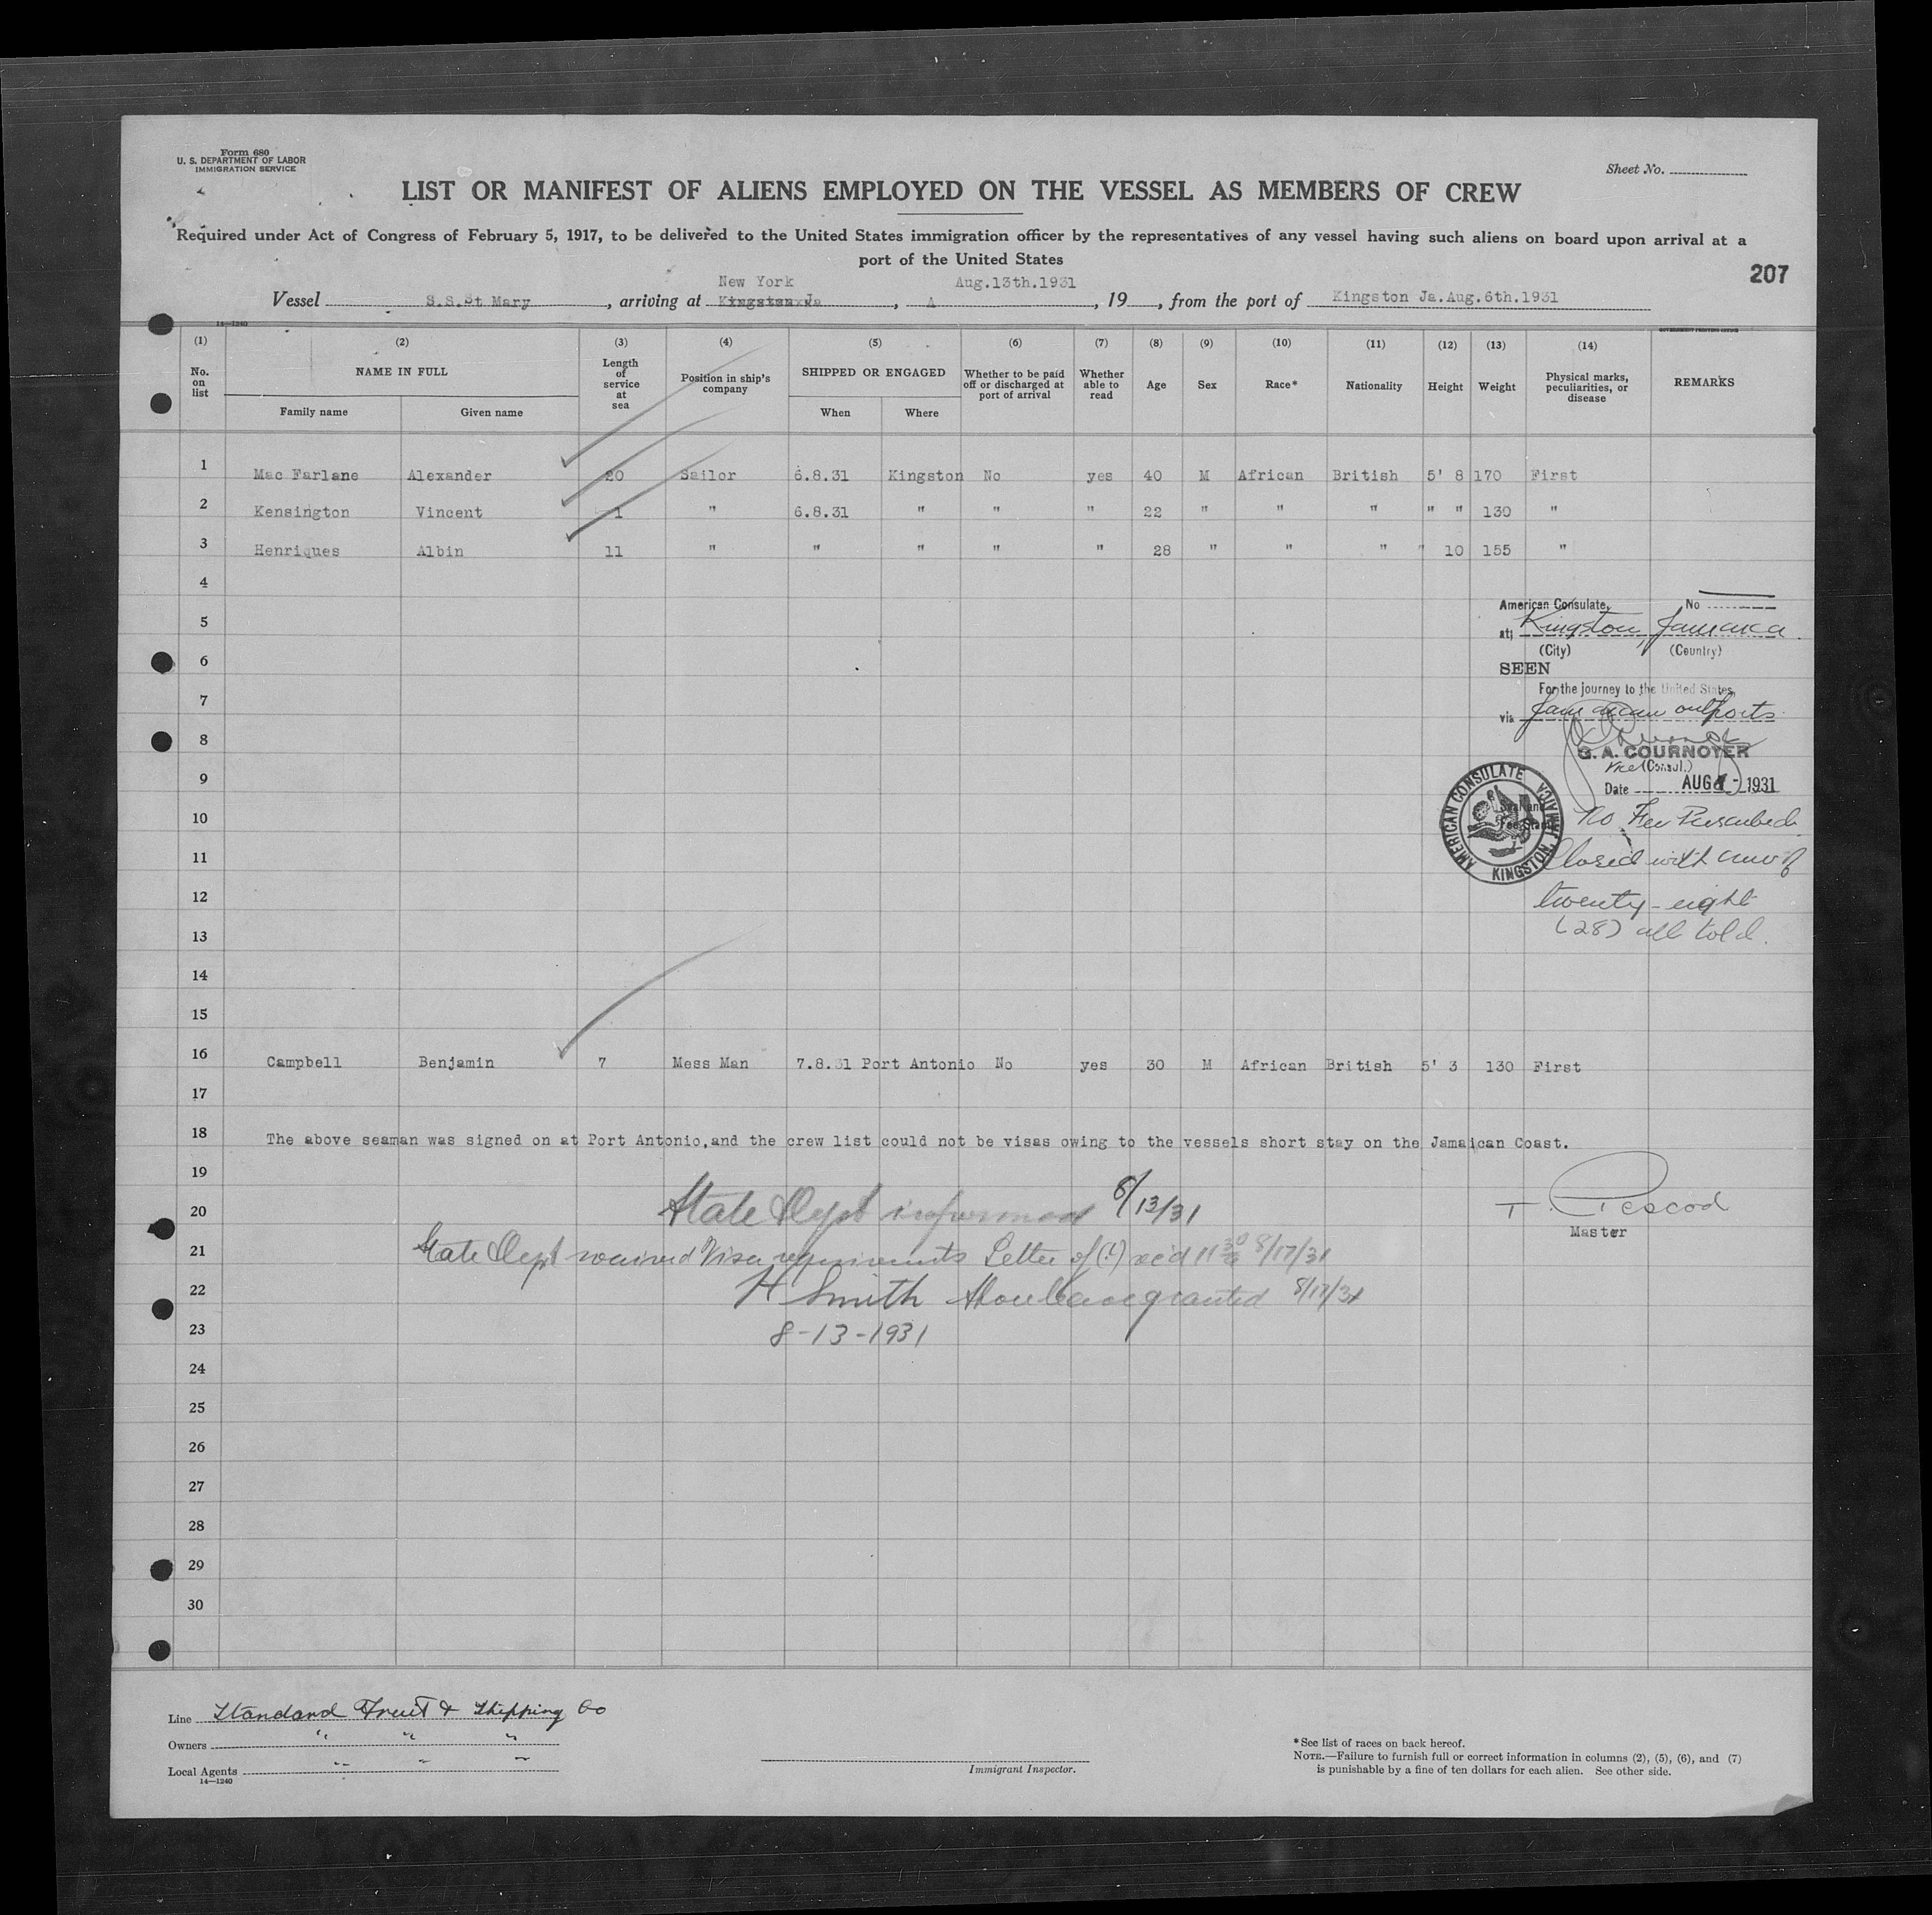 Form 680
U. S. DEPARTMENT OF LABOR
IMMIGRATION SERVICE
Sheet No.
LIST OR MANIFEST OF ALIENS EMPLOYED ON THE VESSEL AS MEMBERS OF CREW
Required under Act of Congress of February 5, 1917, to be delivered to the United States immigration officer by the representatives of any vessel having such aliens on board upon arrival at a
port of the United States
207
New York Aug.13th.1931
Vessel S.S.St Mary , arriving at Kingston Ja , A , 19 , from the port of Kingston Ja.Aug.6th.1931
14—1240
GOVERNMENT PRINTING OFFICE
(1) (2) (3) (4) (5) (6) (7) (8) (9) (10) (11) (12) (13) (14)
No. on list NAME IN FULL Family name Given name Length of service at sea Position in ship's company SHIPPED OR ENGAGED When Where Whether to be paid off or discharged at port of arrival Whether able to read Age Sex Race* Nationality Height Weight Physical marks, peculiarities, or disease REMARKS
1 Mac Farlane Alexander 20 Sailor 6.8.31 Kingston No yes 40 M African British 5' 8 170 First
2 Kensington Vincent 1 " 6.8.31 " " " 22 " " " " " 130 "
3 Henriques Albin 11 " " " " " 28 " " " " 10 155 "
4
American Consulate, No
5
at Kingston, Jamaica.
(City) (Country)
6
SEEN
For the journey to the United States,
7
via Jamaican outports
8
G. A. COURNOYER
Vice (Consul.)
9
Date AUG 1931
AMERICAN CONSULATE
KINGSTON, JAMAICA
10
No Fee Prescribed.
11
Closed with crew of
12
twenty-eight
13
(28) all told.
14
15
16 Campbell Benjamin 7 Mess Man 7.8.31 Port Antonio No yes 30 M African British 5' 3 130 First
17
18 The above seaman was signed on at Port Antonio,and the crew list could not be visas owing to the vessels short stay on the Jamaican Coast.
19
20 State Dept informed 8/13/31
T. Pescod
Master
21 State Dept waived Visa requirements Letter of rec'd 11 30 8/17/31
22 H Smith granted 8/17/31
23 8-13-1931
24
25
26
27
28
29
30
Line Standard Fruit & Shipping Co
Owners " " "
Local Agents " " "
14—1240
Immigrant Inspector.
*See list of races on back hereof.
NOTE.—Failure to furnish full or correct information in columns (2), (5), (6), and (7)
is punishable by a fine of ten dollars for each alien. See other side.